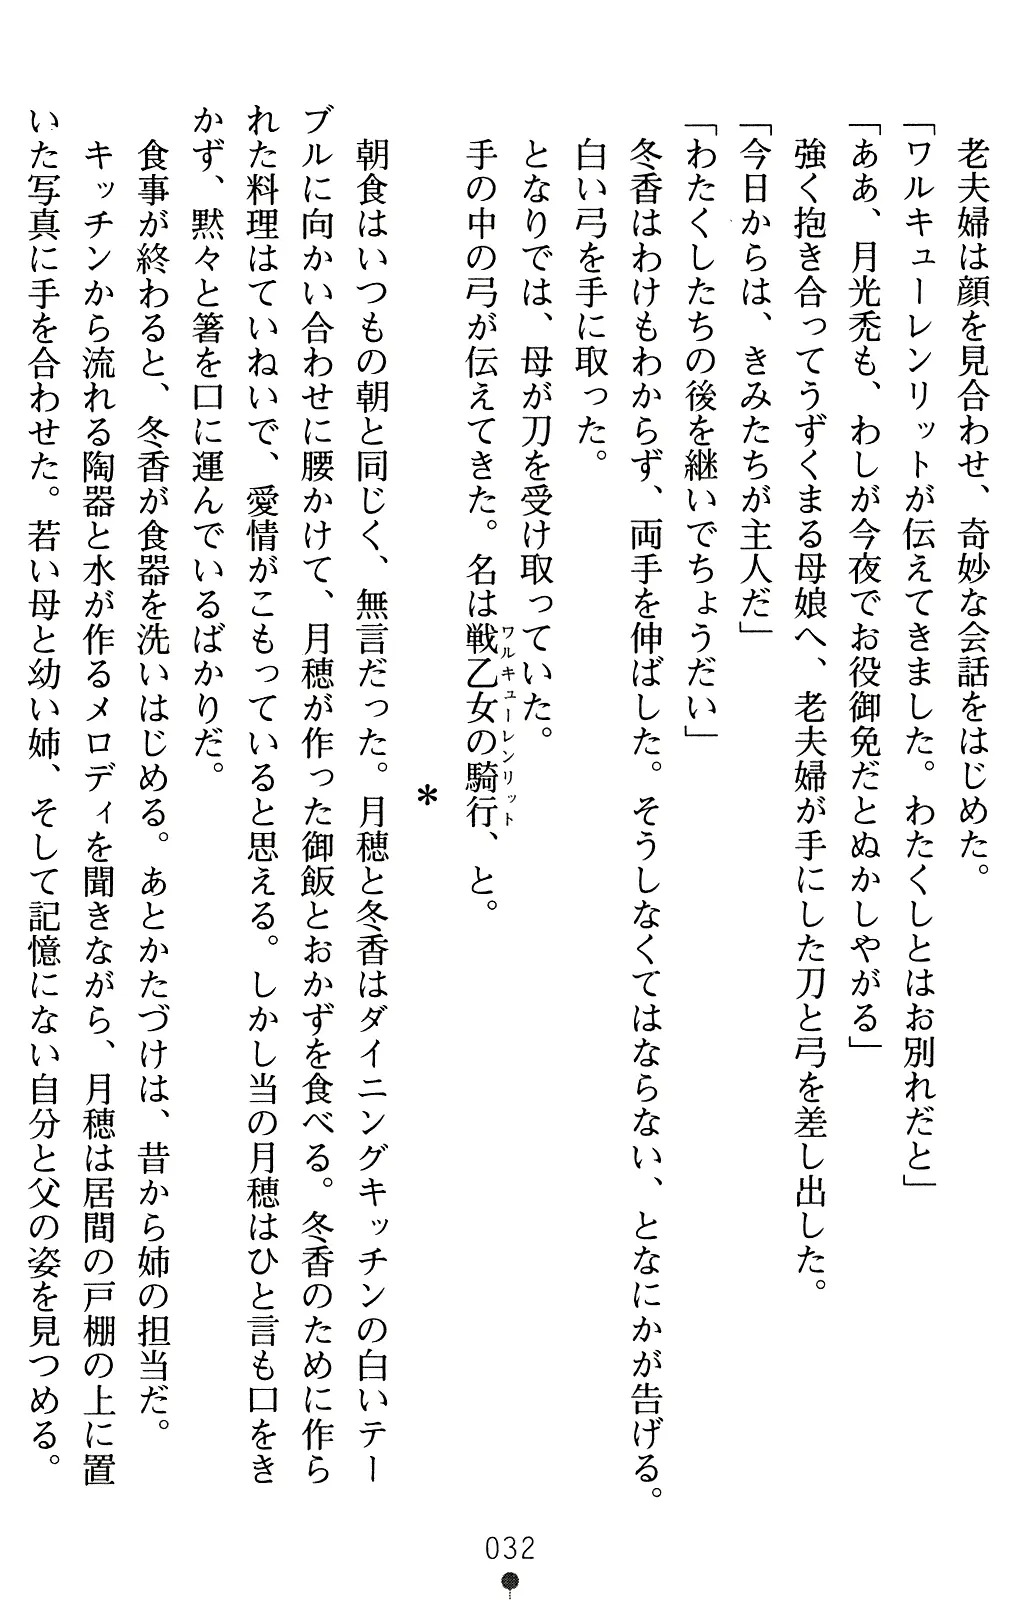 老夫婦は顔を見合わせ、奇妙な会話をはじめた。
「ワルキューレンリットが伝えてきました。わたくしとはお別れだと」
「ああ、月光禿も、わしが今夜でお役御免だとぬかしやがる」
強く抱き合ってうずくまる母娘へ、老夫婦が手にした刀と弓を差し出した。
「今日からは、きみたちが主人だ」
「わたくしたちの後を継いでちょうだい」
冬香はわけもわからず、両手を伸ばした。そうしなくてはならない、となにかが告げる。
白い弓を手に取った。
となりでは、母が刀を受け取っていた。
手の中の弓が伝えてきた。名は戦乙女の騎行、と。
ワルキューレンリット
*
朝食はいつもの朝と同じく、無言だった。月穂と冬香はダイニングキッチンの白いテー
ブルに向かい合わせに腰かけて、月穂が作った御飯とおかずを食べる。冬香のために作ら
れた料理はていねいで、愛情がこもっていると思える。しかし当の月穂はひと言も口をき
かず、黙々と箸を口に運んでいるばかりだ。
食事が終わると、冬香が食器を洗いはじめる。あとかたづけは、昔から姉の担当だ。
キッチンから流れる陶器と水が作るメロディを聞きながら、月穂は居間の戸棚の上に置
いた写真に手を合わせた。若い母と幼い姉、そして記憶にない自分と父の姿を見つめる。
032